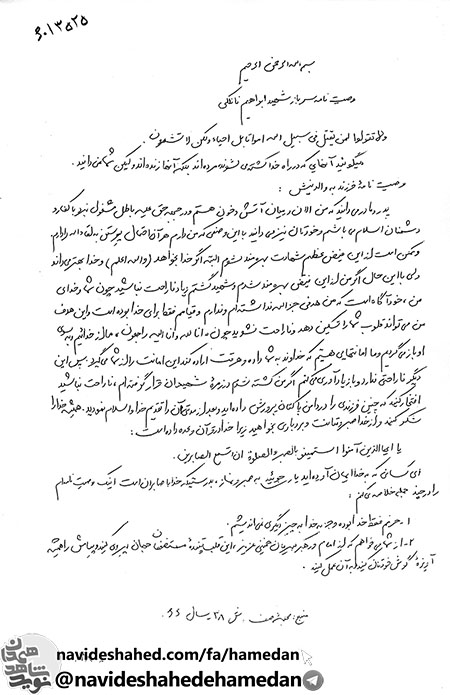 ۶۰۱۳۵۲۵
بسم الله الرحمن الرحیم
وصیت نامه سرباز شهید ابراهیم
ولا تقولوا لمن یقتل فی سبیل الله امواتا بل احیاء ولکن لا تشعرون.
میگوئید آنهایی که در راه خدا کشته می شوند مرده اند بلکه آنها زنده اند ولیکن شما نمی دانید.
وصیت نامه فرزند به والدینش :
پدر و مادرم می دانید که من الان در میان آتش و خون هستم و در جبهه حق علیه باطل مشغول نبرد با کفار و
دشمنان اسلام می باشم و خودتان نیز می دانید با این وضعی که من دارم هر آن احتمال پیوستن به لقاء الله را دارم
و ممکن است از این فیض عظیم شهادت بهره مند شوم البته اگر خدا بخواهد (والله اعلم) و خدا بهتر می داند
ولی با این حال اگر من از این فیض بهره مند شدم و شهید گشتم زیاد ناراحت نباشید چون شما و خدای
من، خود آگاه است که من هدفی جز الله نداشته ام و ندارم و قیام فقط برای خدا بوده است و این هدف
من می تواند قلوب شما را تسکین دهد و ناراحت نشوید چون «انا لله و ان الیه راجعون» ما از خدائیم و به سوی
او باز می گردیم و ما امانتهایی هستیم که خداوند به شما داده و هر وقت اراده کند این امانت را از شما می گیرد، پس این
دیگر ناراحتی ندارد و باز یادآوری می کنم اگر من کشته شدم و در زمره شهیدان قرار گرفته ام، ناراحت نباشید
افتخار کنید که چنین فرزندی را در دامن پاکتان پرورش داده اید و بعد از مدتی آن را تقدیم خدا و اسلام نمودید. همیشه خدا را
شکر کنید و از خدا صبر و متانت و بردباری بخواهید زیرا خدا در قرآن وعده داده است:
یا ایها الذین آمنوا استعینو بالصبر و الصلوة ان الله مع الصابرین.
ای کسانی که به خدا ایمان آورده اید یاری جوئید به صبر و نماز، بدرستیکه خدا با صابران است اینک وصیت نامه ام
را در چند جمله خلاصه می کنم:
۱- هدفم فقط خدا بوده و جز به خدا به چیز دیگری نمی اندیشم.
۲- از شما می خواهم که از امام و رهبر مهربان خمینی عزیز، این قلب تپنده مستضعفان جهان پیروی کنید و پیامش را همیشه
آویزه گوش خودتان کنید و به آن عمل کنید.
منبع: ش ۳۸ سال ۶۶
navideshahed.com/fa/hamedan
@navideshahedehamedan
نوید شاهد همدان